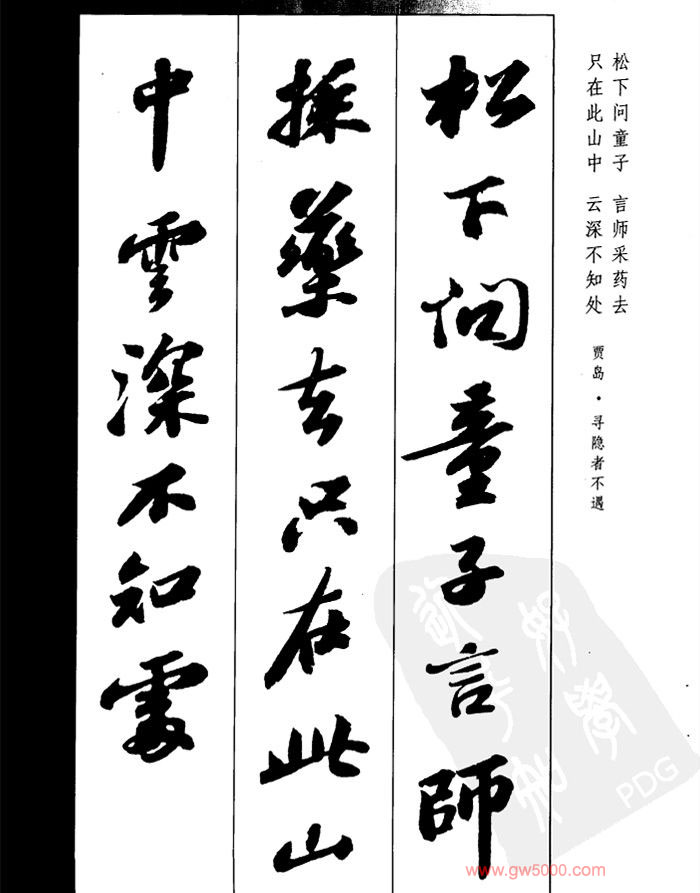 松下问童子 言师采药去
只在此山中 云深不知处
贾岛·寻隐者不遇
松下問童子言師
採藥去只在此山
中雲深不知處
PDG
www.gw5000.com